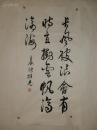 长风破浪会有
时直挂云帆济
沧海